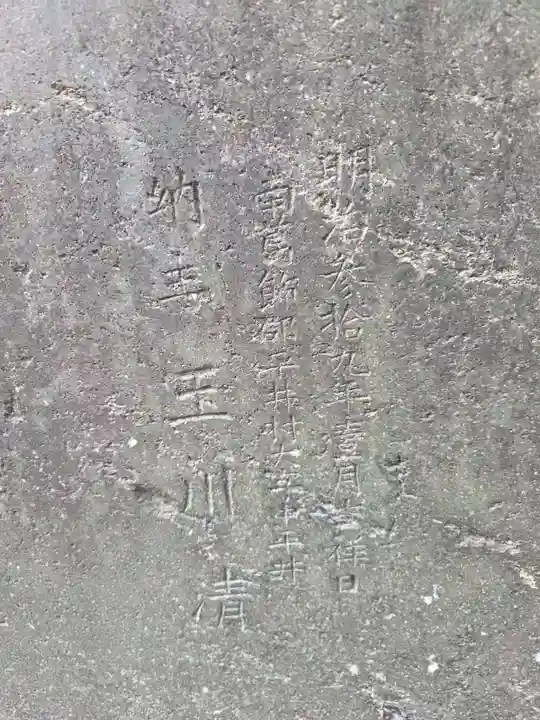 明治参拾九年壹月吉祥日
南葛飾郡平井村大字下平井
納主玉川清